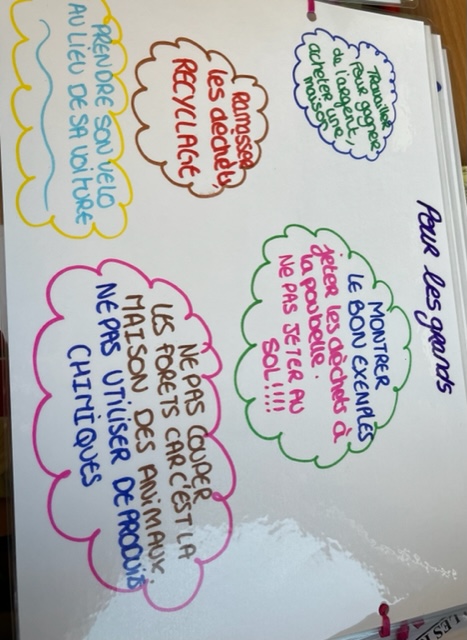 POUR les grands
TRavailler
POUR gagner
de l'argent,
acheter une
maison
MONTRER
LE BON EXEMPLES
jeter les dèchets à
la poubelle.
NE PAS JETER AU
SOL!!!!
Ramasser
les dèchets,
RECYCLAGE
NE PAS COUPER
LES FORETS CAR C'EST LA
MAISON DES ANiMAUX.
NE PAS UTiLiSER DE PRODUiTS
CHiMiQUES
PRENDRE SON VELO
AU LIEU DE SA VOiTURE